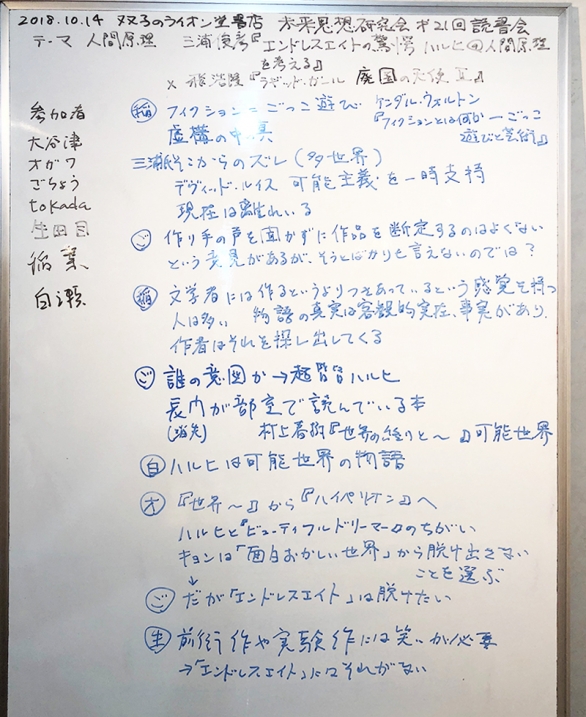 2018.10.14 双子のライオン堂書店 未来思想研究会 第21回 読書会
テーマ 人間原理 三浦俊彦『エンドレスエイトの驚愕 ハルヒ@人間原理
を考える』
× 飛浩隆『ラギッド・ガール 廃園の天使Ⅱ』
参加者
大谷津
オガワ
ごちょう
tokada
生田目
稲葉
白瀬
稲 フィクション=ごっこ遊び ケンダル・ウォルトン
『フィクションとは何か―ごっこ
遊びと芸術』
虚構の中・真
三浦氏そこからのズレ(多世界)
デヴィッド・ルイス 可能主義を一時支持
現在は離れいる
ご 作り手の声を聞かずに作品を断定するのはよくない
という意見があるが、そうとばかりも言えないのでは?
稲 文学者には作るというよりつきあっているという感覚を持つ
人は多い 物語の真実は客観的実在、事実があり、
作者はそれを探し出してくる
ご 誰の意図か→超監督ハルヒ
長門が部室で読んでいる本
村上春樹『世界の終りと~』可能世界
白 ハルヒは可能世界の物語
オ 『世界~』から『ハイペリオン』へ
ハルヒと『ビューティフルドリーマー』のちがい
キョンは「面白おかしい世界」から脱け出さない
ことを選ぶ
ご だが「エンドレスエイト」は脱けたい
生 前衛作や実験作には笑いが必要
→「エンドレスエイト」にはそれがない